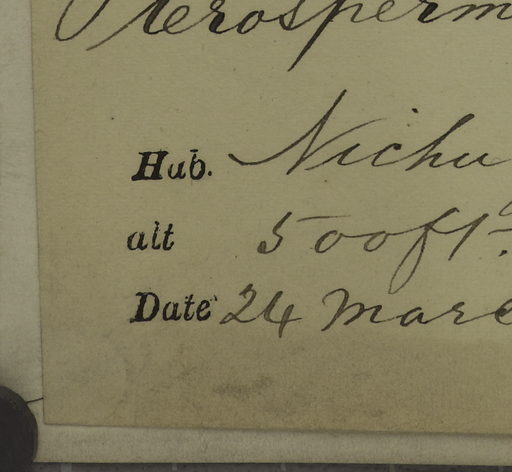 Pterosperm
Hab. Nichu
alt 500ft.
Date 24 Marc